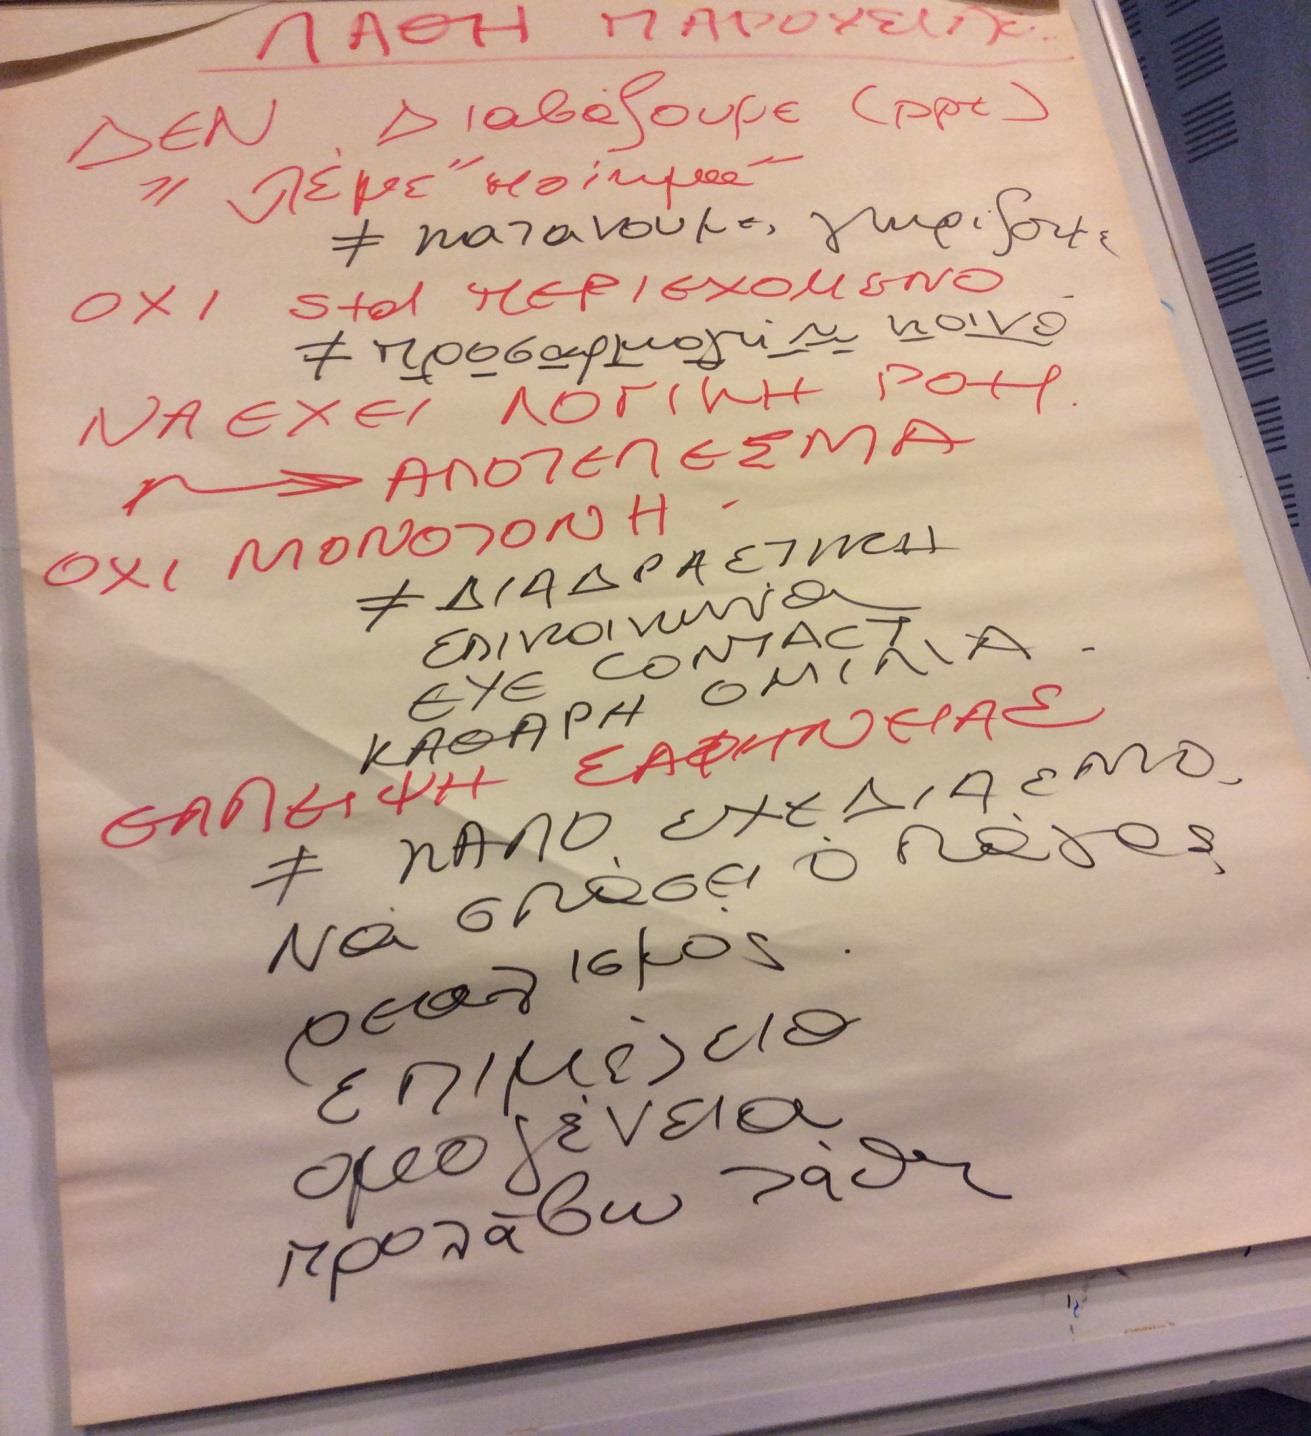 ΛΑΘΗ ΠΑΡΟΥΣΙΑΣ.
ΔΕΝ Διαβάζουμε (ppt)
" λέμε "ποίημα"
≠ κατανουμε, γνωρίζουμε
ΟΧΙ std ΠΕΡΙΕΧΟΜΕΝΟ
≠ προσαρμογή κοινό
ΝΑ ΕΧΕΙ ΛΟΓΙΚΗ ΡΟΗ.
→ ΑΠΟΤΕΛΕΣΜΑ
ΟΧΙ ΜΟΝΟΤΟΝΗ -
≠ ΔΙΑΔΡΑΣΤΙΚΗ
επικοινωνία
EYE CONTACT
ΚΑΘΑΡΗ ΟΜΙΛΙΑ -
ΕΛΛΕΙΨΗ ΣΑΦΗΝΕΙΑΣ
≠ ΚΑΛΟ ΣΧΕΔΙΑΣΜΟ.
Νά σπάσει ὁ πάγος
ρεαλισμός.
επιμέλεια
ομοιογένεια
προλάβω λάθη